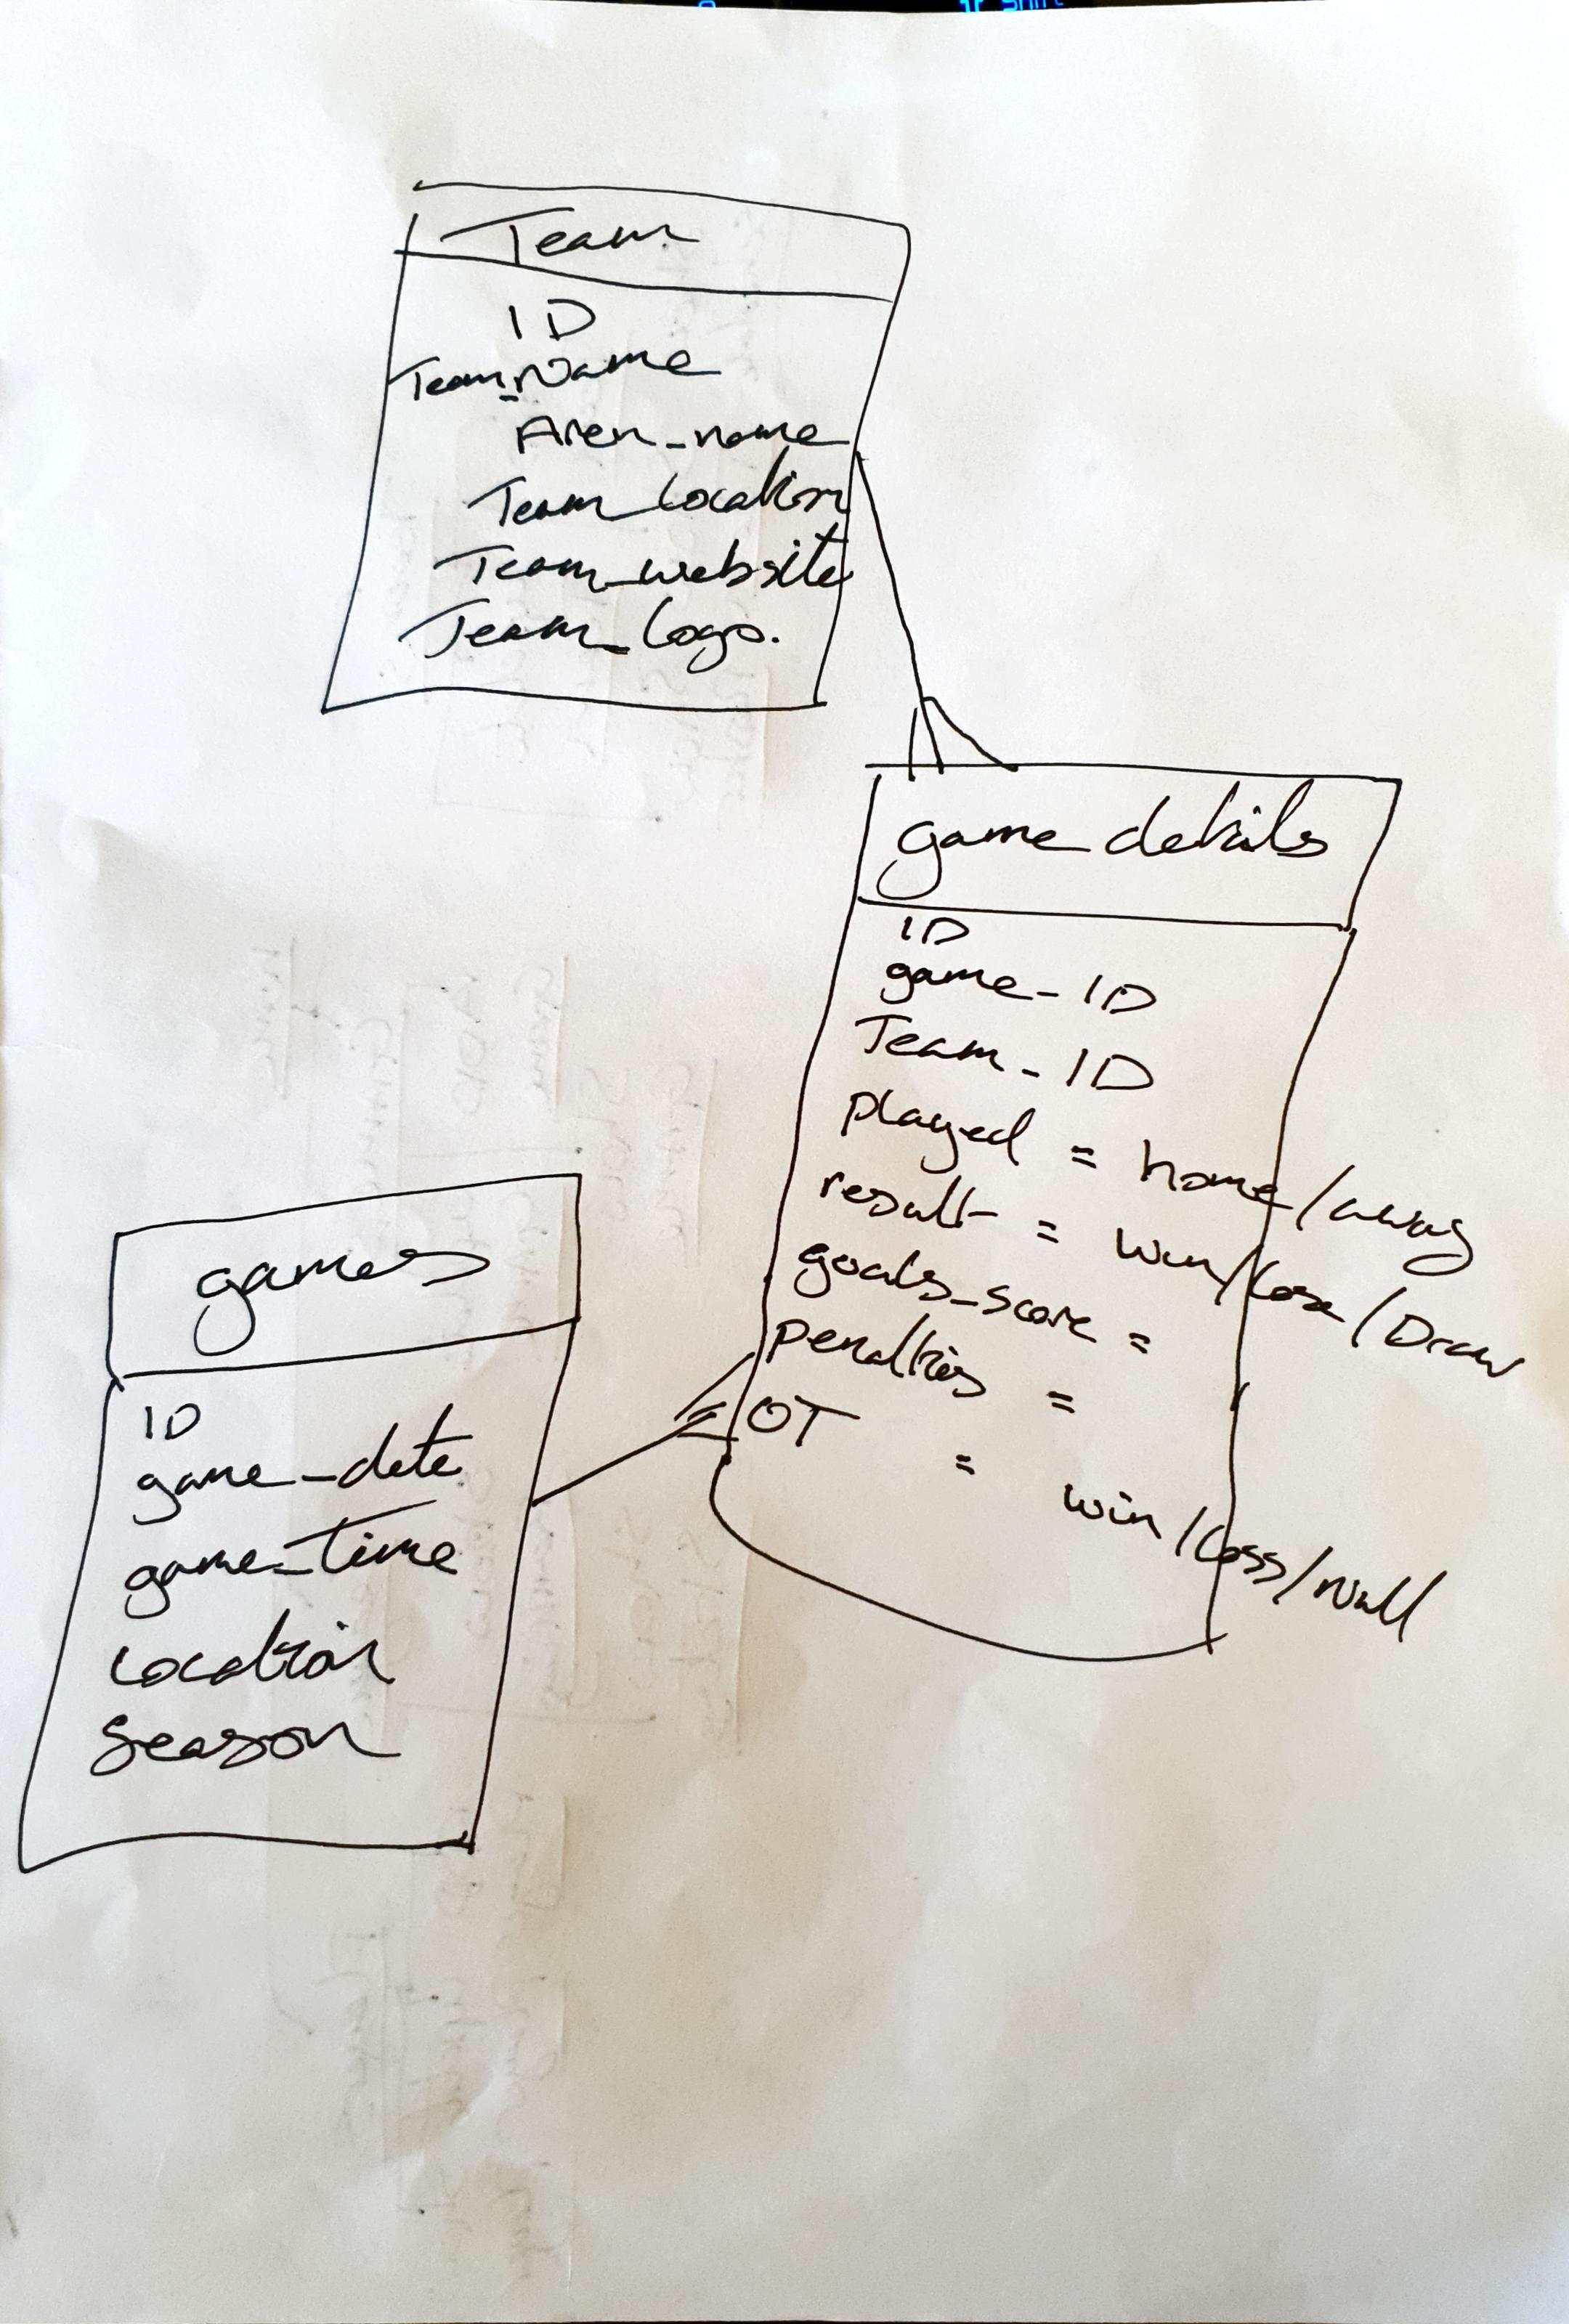 Team
ID
Team_Name
Aren_name
Team_location
Team_website
Team_logo.
game_details
ID
game_ID
Team_ID
played = home/away
result = win/Lose/Draw
goals_score =
Penalties =
OT = win/Loss/Null
games
ID
game_date
game_Time
Location
Season